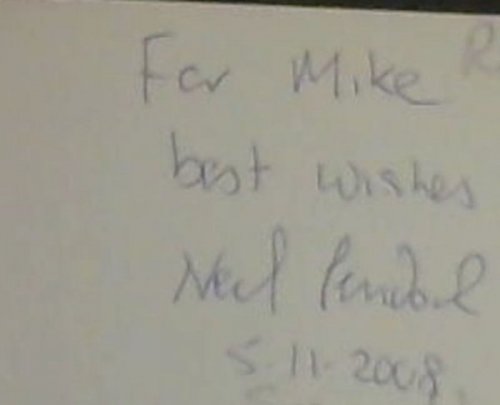 For Mike
best wishes
Neil
5-11-2008